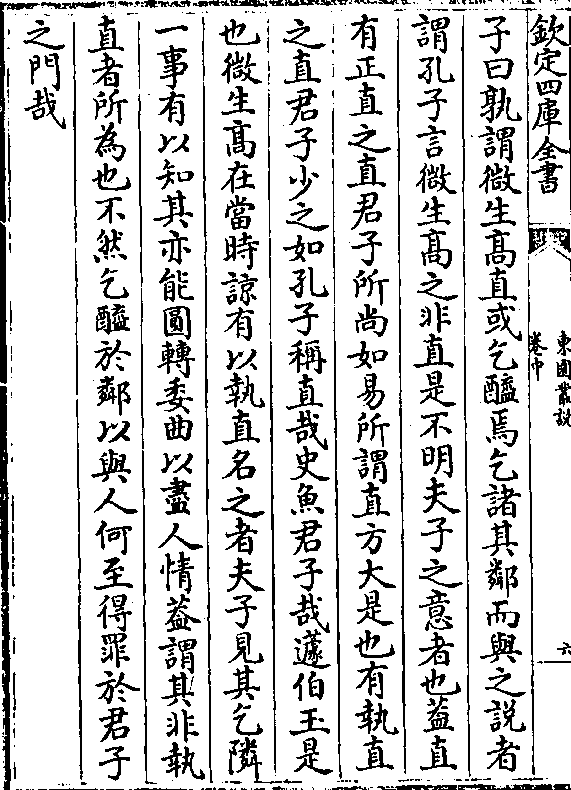 欽定四庫全書
東園叢說
卷中
六
子曰孰謂微生髙直或乞醯焉乞諸其鄰而與之說者
謂孔子言微生髙之非直是不明夫子之意者也葢直
有正直之直君子所尚如易所謂直方大是也有執直
之直君子少之如孔子稱直哉史魚君子哉蘧伯玉是
也微生髙在當時諒有以執直名之者夫子見其乞隣
一事有以知其亦能圓轉委曲以盡人情葢謂其非執
直者所為也不然乞醯於鄰以與人何至得罪於君子
之門哉